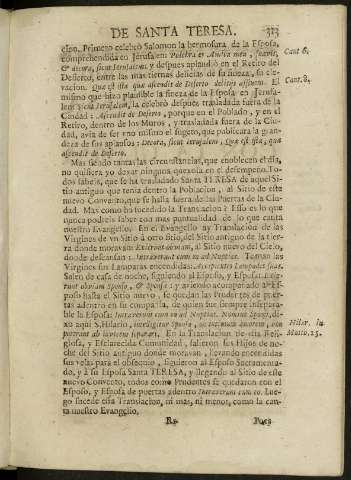 DE SANTA TERESA. 313
cion. Primero celebrò Salomon la hermosura de la Esposa,
comprehendida en Jerusalem: Pulchra es Amica mea, suavis,
& decora, sicut Jerusalem; y despues aplaudiò en el Retiro del
Desierto, entre las mas tiernas delicias de su fineza, su ele-
vacion. Quæ est ista quæ ascendit de Deserto deliciis affluens. El
mismo que hizo plausible la fineza de la Esposa en Jerusa-
lem sicut Jerusalem, la celebrò despues trasladada fuera de la
Ciudad: Ascendit de Deserto, porque en el Poblado, y en el
Retiro, dentro de los Muros, y trasladada fuera de la Ciu-
dad, avia de ser uno mismo el sugeto, que publicara la gran-
deza de sus aplausos: Decora, sicut Jerusalem, Quæ est ista, quæ
ascendit de Deserto.
Mas siendo tantas las circunstancias, que enoblecen el dia,
no quisiera yo dexar ninguna quexosa en el desempeño. To-
dos sabeis, que se ha trasladado Santa TERESA de aquel Si-
tio antiguo que tenia dentro la Poblacion, al Sitio de este
nuevo Convento, que se halla fuera de las Puertas de la Ciu-
dad. Mas como ha sucedido la Translacion? Esso es lo que
nunca podreis saber con mas puntualidad de lo que canta
nuestro Evangelio. En el Evangelio ay Translacion de las
Virgines de un Sitio à otro Sitio, del Sitio antiguo de la tier-
ra donde moravan: Exierunt obviam, al Sitio nuevo del Cielo,
donde descansan: Intraverunt cum eo ad Nuptias. Toman las
Virgines sus Lamparas encendidas: Accipientes Lampades suas.
Salen de casa de noche, siguiendo al Esposo, y Esposa: Exie-
runt obviam Sponso, & Sponsæ: y aviendo acompañado al Es-
poso hasta el Sitio nuevo, se quedan las Prudentes de puer-
tas adentro en su compañia, de quien fue siempre insepara-
ble la Esposa: Intraverunt cum eo ad Nuptias. Nomine Sponsi, di-
xo aqui S. Hilario, intelligitur Sponsa,
portant ab invicem separari. En la Translacion de esta Reli-
giosa, y Esclarecida Comunidad, salieron sus Hijos de no-
che del Sitio antiguo donde moravan, llevando encendidas
sus velas para el obsequio, siguieron al Esposo Sacramenta-
do, y à su Esposa Santa TERESA, y llegando al Sitio de este
nuevo Convento, todos como Prudentes se quedaron con el
Esposo, y Esposa de puertas adentro: Intraverunt cum eo. Lue-
go sucede esta Translacion, ni mas, ni menos, como la can-
ta nuestro Evangelio.
Rr Pues
Cant 6.
Cant. 8.
Hilar. in
Matth. 25.